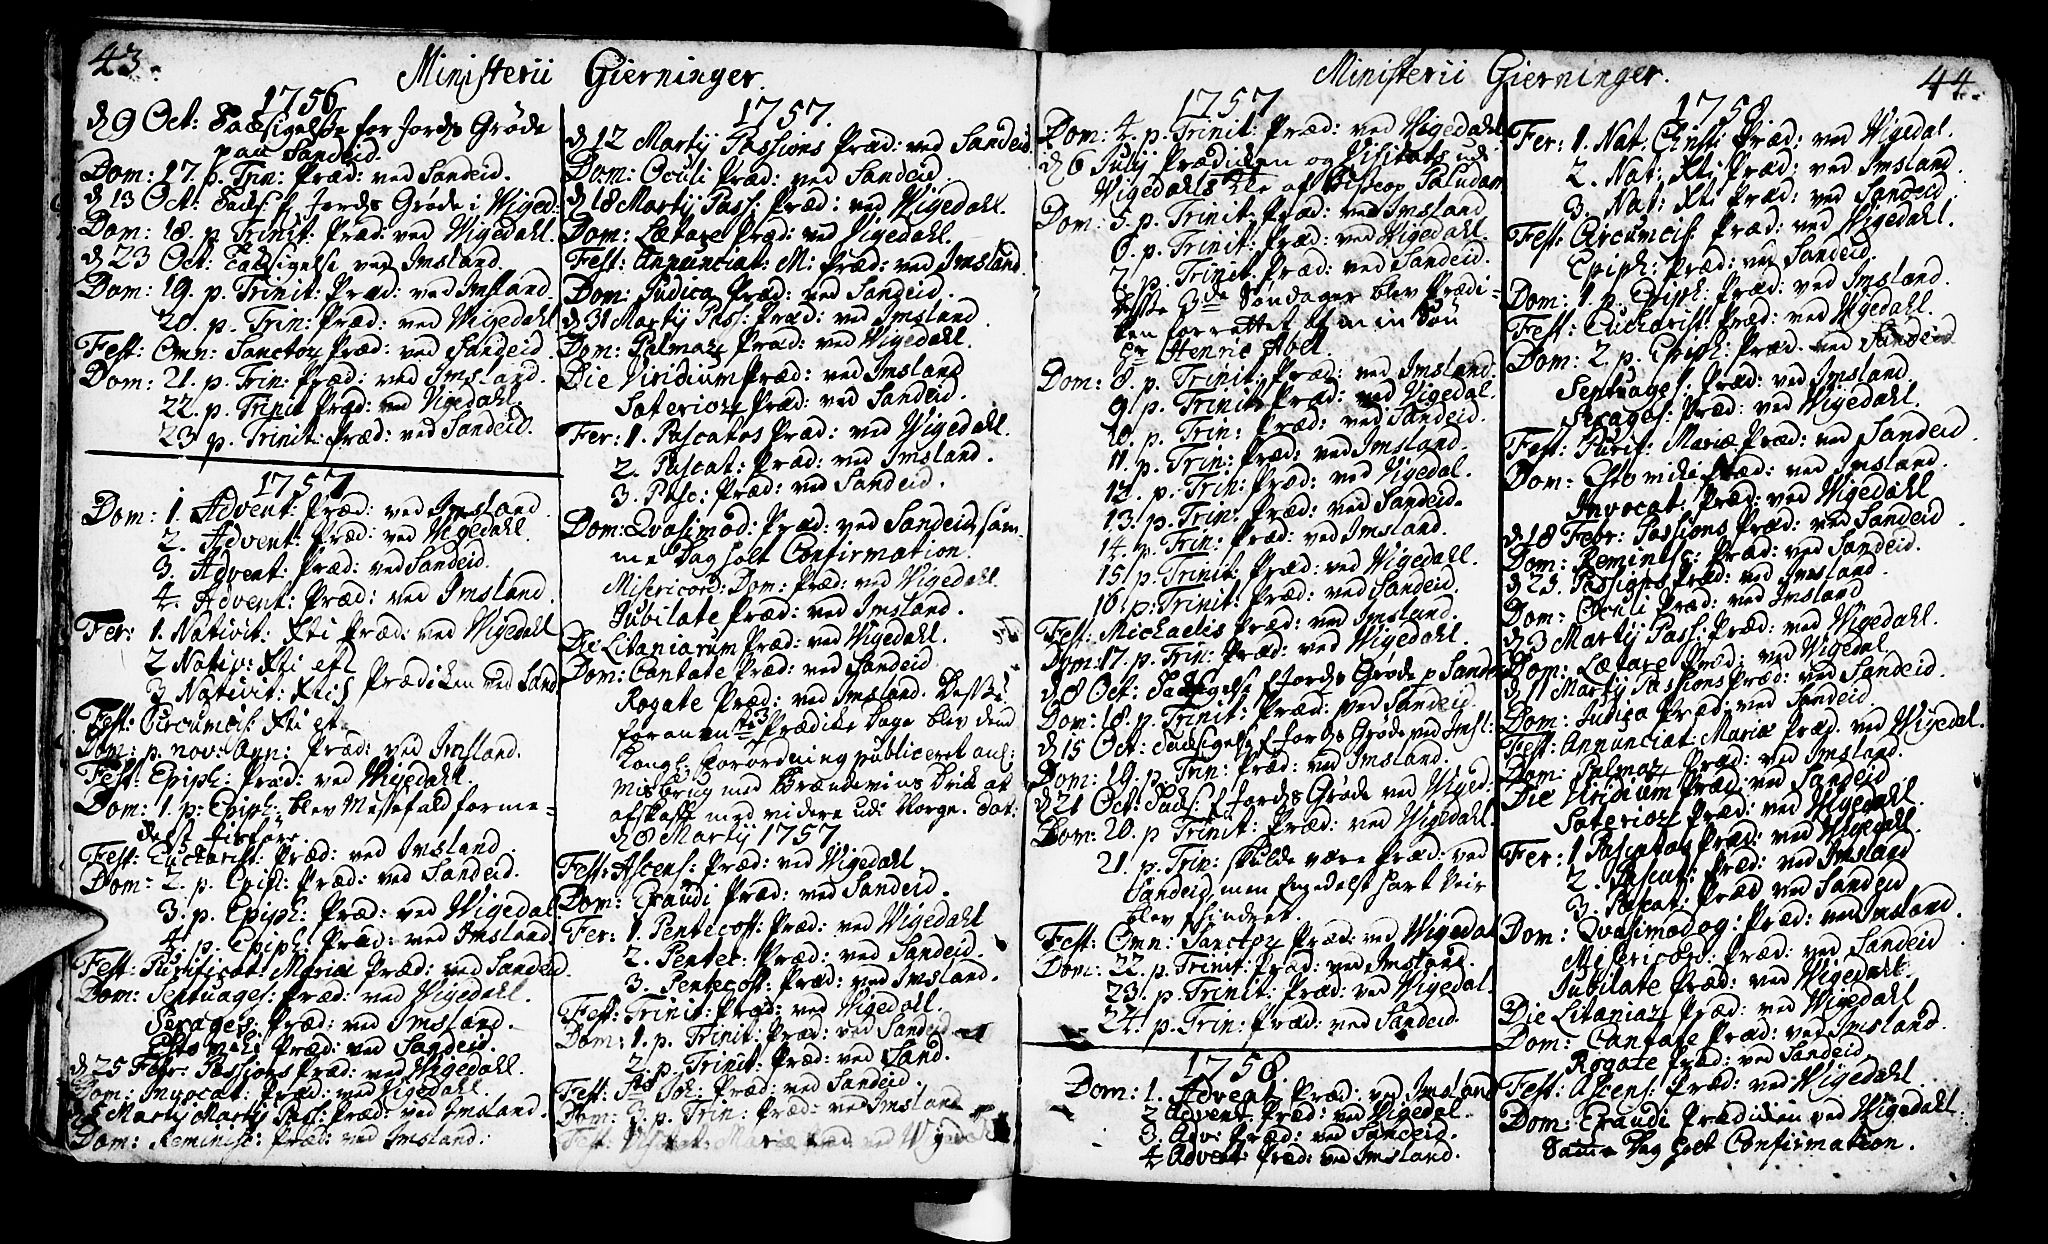 43.
Ministerii Gierninger.
1756
d 9 Oct: Tacksigelse for Jords Grøde
paa Sandeid.
Dom: 17. p. Trin: Præd: ved Sandeid.
d 13 Oct: Tacks: f Jords Grøde i Viged:
Dom: 18. p Trinit: Præd: ved Vigedahl.
d 23 Oct: Tacksigelse ved Imsland.
Dom: 19. p. Trinit: Præd: ved Imsland.
20. p. Trin: Præd: ved Vigedahl
Fest: Omn: Sanctor Præd: ved Sandeid.
Dom: 21. p. Trin: Præd: ved Imsland.
22. p. Trinit Præd: ved Vigedahl.
23 p. Trinit: Præd: ved Sandeid.
1757
Dom: 1. Advent: Præd: ved Imsland.
2. Advent: Præd: ved Vigedahl.
3. Advent: Præd: ved Sandeid.
4. Advent: Præd: ved Imsland.
Fer: 1. Nativit: Xti Præd: ved Vigedahl
2 Nativ: Xti et
3 Nativit: Xti Prædiken ved Sand
Fest: Circumcis: Xti et
Dom: p. nov: Ann: Præd: ved Imsland.
Fest: Epiph: Præd: ved Vigedahl.
Dom: 1. p: Epiph: blev Messefald forme-
delst
Fest: Eucharist: Præd: ved Imsland.
Dom: 2. p. Epiph: Præd: ved Sandeid.
3. p. Epiph: Præd: ved Vigedal
4. p. Epiph: Præd: ved Imsland
Fest: Purificat: Mariæ Præd: ved Sandeid.
Dom: Septuages: Præd: ved Vigedahl.
Sexages: Præd: ved Imsland.
Esto mihi Præd: ved Sandeid.
d 25 Febr: Passions Præd: ved Vigedahl.
Dom: Invocat: Præd: ved Vigedahl.
Martij Pass: Præd: ved Imsland.
Dom: Reminisc: Præd: ved Imsland:
1757.
d 12 Martij Passions Præd: ved Sandeid.
Dom: Oculi Præd: ved Sandeid.
d 18 Martij Pass: Præd: ved Vigedahl.
Dom: Lætare Præd: ved Vigedahl.
Fest: Annunciat: M: Præd: ved Imsland.
Dom: Judica Præd: ved Sandeid.
d 31 Martij Pass: Præd: ved Imsland.
Dom: Palmar Præd: ved Vigedahl.
Die Viridium Præd: ved Imsland
Soterior Præd: ved Sandeid.
Fer: 1. Pascatos Præd: ved Vigedahl.
2. Pascat: Præd: ved Imsland.
3. Pasc: Præd: ved Sandeid.
Dom: Qvasimod: Præd: ved Sandeid, sam-
me Dag holt Confirmation.
Misericord: Dom: Præd: ved Vigedahl.
Jubilate Præd: ved Imsland.
Die Litaniarum Præd: ved Vigedahl.
Dom: Cantate Præd: ved Sandeid
Rogate Præd: ved Imsland. Desse
foranente 3 Prædike Dage blev dend
Kongl: Forordning publiceret anl:
Misbrug med Brændeviins Drik at
afskaffe med videre udi Norge. Dat:
d 8 Martij 1757
Fest: Ascens: Præd: ved Vigedahl.
Dom: Exaudi Præd: ved Sandeid.
Fer: 1. Pentecost: Præd: ved Vigedahl
2. Pentec: Præd: ved Sandeid.
3. Pentecost: Præd: ved Imsland.
Fest: Trinit: Præd: ved Vigedahl.
Dom: 1. p. Trinit: Præd: ved Sandeid
2. p. Trinit: Præd: ved Sand.
Fest: Præd: ved Sandeid.
Dom: 3. p. Trin: Præd: ved Imsland
Fest: Mariæ Præd: ved
Ministerii Gierninger.
44.
1757
Dom: 4. p. Trinit: Præd: ved Vigedahl
d 6 July Prædiken og Visitats udi
Vigedahls af Biscop Paludan
Dom: 5. p. Trinit: Præd: ved Imsland
6. p. Trinit: Præd: ved Vigedahl.
7. p. Trinit: Præd: ved Sandeid.
Desse 3de Søndager blev Prædi-
ken forrettet af min Søn
Hr Henric Abel.
Dom: 8. p. Trinit: Præd: ved Imsland.
9 p. Trinit: Præd: ved Vigedal.
10. p. Trin: Præd: ved Sandeid.
11. p. Trin: Præd: ved Imsland
12. p. Trin: Præd: ved Vigedal.
13. p. Trin: Præd: ved Sandeid.
14. p. Trin: Præd: ved Imsland.
15 p. Trinit: Præd: ved Vigedahl.
16 p. Trinit: Præd: ved Sandeid.
Fest: Michaelis Præd: ved Imsland.
Dom: 17. p. Trin: Præd: ved Vigedahl.
d 8 Oct: Tacksigelse f Jords Grøde p Sand
Dom: 18. p. Trinit: Præd: ved Sandeid.
d 15 Oct: Tacksigelse f Jords Grøde ved Imsl:
Dom: 19. p. Trin: Præd: ved Imsland.
d 21 Oct: Tacks: f Jords Grøde ved Viged:
Dom: 20. p Trinit: Præd: ved Vigedahl.
21. p. Trin: skulde være Præd: ved
Sandeid, men Emedelst hart Veir
blev hindret.
Fest: Omn: Sanctor Præd: ved Vigedal
Dom: 22. p. Trinit: Præd: ved Imsland.
23. p. Trinit: Præd: ved Vigedal.
24. p. Trin: Præd: ved Sandeid.
1758.
Dom: 1. Advent Præd: ved Imsland
2. Advent. Præd: ved Vigedal.
3. Adv: Præd: ved Sandeid.
4 Advent: Præd: ved Imsland.
1758
Fer: 1. Nat. Christi Præd: ved Vigedal.
2. Nat: Xti Præd: ved Imsland
3. Nat: Xti Præd: ved Sandeid
Fest: Circumcis: Præd: ved Vigedahl.
Epiph: Præd: ved Sandeid.
Dom: 1. p. Epiph: Præd: ved Imsland.
Fest: Eucharist: Præd: ved Vigedahl.
Dom: 2 p. Epiph: Præd: ved Sandeid
Septuages: Præd: ved Imsland
Sexages: Præd: ved Vigedahl.
Fest: Purif: Mariæ Præd: ved Sandeid.
Dom: Esto mihi Præd: ved Imsland.
Invocat: Præd: ved Vigedahl
d 18 Febr: Passions Præd: ved Sandeid
Dom: Reminisc: Præd: ved Sandeid.
d 23. Passions Præd: ved Imsland.
Dom: Oculi Præd: ved Imsland
d 3 Martij Pass: Præd: ved Vigedahl.
Dom: Lætare Præd: ved Vigedal
d 11 Martij Passions Præd: ved Sandeid.
Dom: Judica Præd: ved Sandeid.
Fest: Annunciat: Mariæ Præd. ved Vigedal.
Dom: Palmar Præd: ved Imsland.
Die Viridium Præd: ved Sandeid
Soterior Præd: ved Vigedahl.
Fer: 1 Pascatos Præd: ved Vigedahl.
2. Pascat: Præd: ved Imsland
3. Pascat: Præd ved Sandeid
Dom: Qvasimodog: Præd: ved Imsland.
Misericord: Præd: ved Sandeid
Jubilate Præd: ved Vigedahl.
Die Litaniar Præd: ved Vigedahl
Dom: Cantate Præd: ved Imsland.
Rogate Præd: ved Sandeid
Fest: Ascens: Præd: ved Vigedahl.
Dom: Exaudi Prædiken ved Vigedahl:
Samme Dag holt Confirmation.